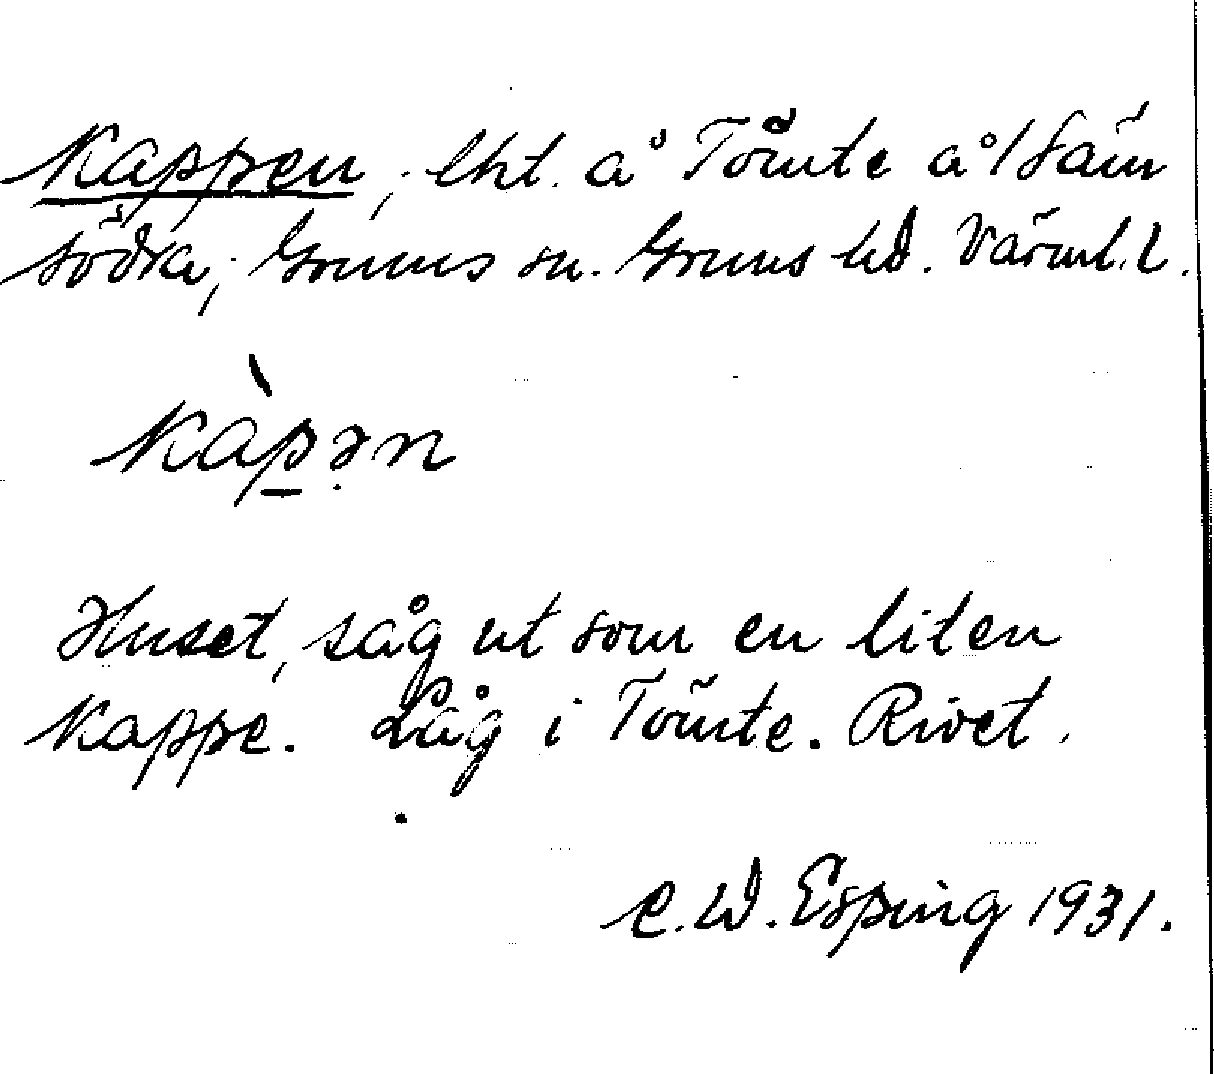 Kappen, lht. å Tömte å/Säm
södra, Grums sn. Grums hd. Värml. l.
kàpən
Huset, såg ut som en liten
kappe. Låg i Tömte. Rivet.
C. W. Esping 1931.